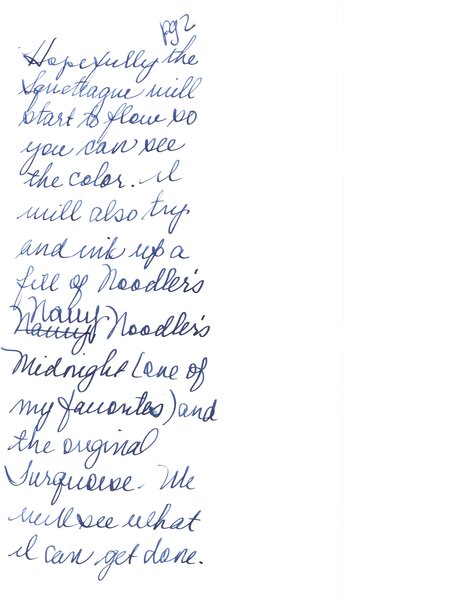 pg 2
Hopefully the
Squeteague will
start to flow so
you can see
the color. I
will also try
and ink up a
fill of Noodler's
Navy
Navy, Noodler's
Midnight (one of
my favorites) and
the original
Turquoise. We
will see what
I can get done.